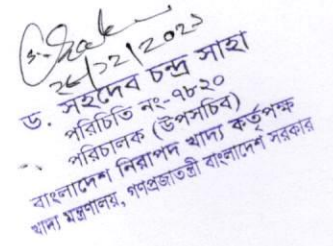 ২৬/১২/২০২১
ড. সহদেব চন্দ্র সাহা
পরিচিতি নং-৭৮২০
পরিচালক (উপসচিব)
বাংলাদেশ নিরাপদ খাদ্য কর্তৃপক্ষ
খাদ্য মন্ত্রণালয়, গণপ্রজাতন্ত্রী বাংলাদেশ সরকার